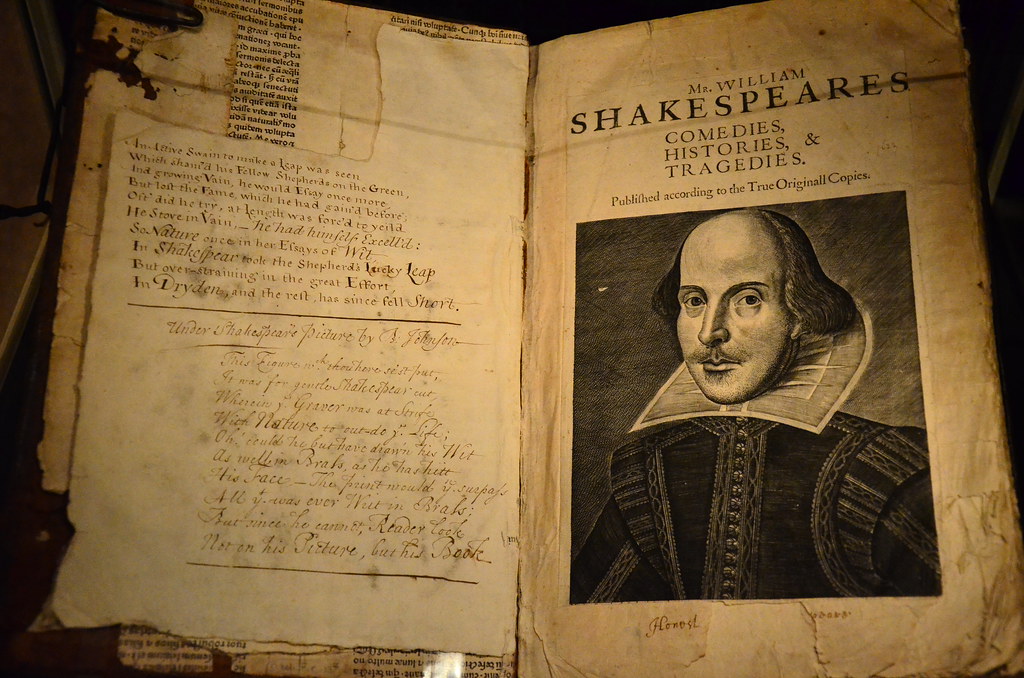 maiores accusabation
habere
qui hoc
vocant
id maxime
sermonis
An Active Swain to make a Leap was seen
Which sham'd his Fellow Shepherds on the Green,
And growing Vain, he would Essay once more,
But lost the Fame, which he had gain'd before;
Oft' did he try, at Length was forc'd to yeild
He Strove in Vain, — he had himself Excell'd:
So Nature once in her Essays of Wit,
In Shakespear took the Shepherd's Lucky Leap
But over-straining in the great Effort,
In Dryden, and the rest, has since fell Short.
Under Shakespears Picture by B. Johnson
This Figure yt. thou here seest put,
It was for gentle Shakespear cut,
Wherein ye. Graver was at Strife
With Nature to out-do ye. Life;
Oh! could he but have drawn his Wit
As well in Brass, as he has hitt
His Face, — The print would yn. surpass
All yt. was ever Writ in Brass;
But since he cannot, Reader look
Not on his Picture, but his Book
Mr. WILLIAM
SHAKESPEARES
COMEDIES,
HISTORIES, &
TRAGEDIES.
Published according to the True Originall Copies.
Honest